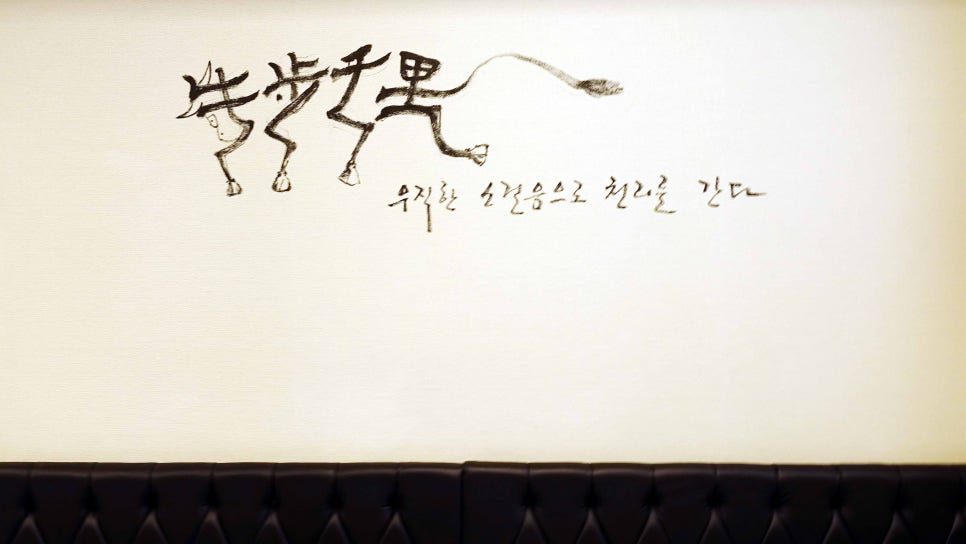 牛步千里
우직한 소걸음으로 천리를 간다